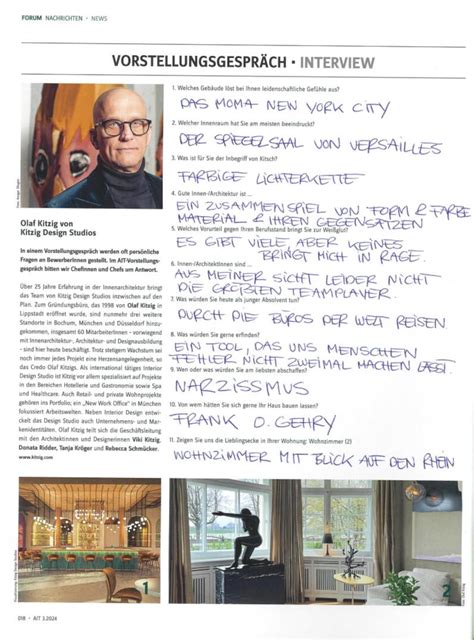 FORUM NACHRICHTEN • NEWS
VORSTELLUNGSGESPRÄCH • INTERVIEW
1. Welches Gebäude löst bei Ihnen leidenschaftliche Gefühle aus?
DAS MOMA NEW YORK CITY
2. Welcher Innenraum hat Sie am meisten beeindruckt?
DER SPIEGELSAAL VON VERSAILLES
3. Was ist für Sie der Inbegriff von Kitsch?
FARBIGE LICHTERKETTE
4. Gute Innen-/Architektur ist ...
EIN ZUSAMMENSPIEL VON FORM & FARBE
MATERIAL & IHREN GEGENSÄTZEN
5. Welches Vorurteil gegen Ihren Berufsstand bringt Sie zur Weißglut?
ES GIBT VIELE ABER KEINES
BRINGT MICH IN RAGE.
6. Innen-/ArchitektInnen sind ...
AUS MEINER SICHT LEIDER NICHT
DIE GRÖßTEN TEAMPLAYER.
7. Was würden Sie heute als junger Absolvent tun?
DURCH DIE BÜROS DER WELT REISEN
8. Was würden Sie gerne erfinden?
EIN TOOL, DAS UNS MENSCHEN
FEHLER NICHT ZWEIMAL MACHEN LÄSST.
9. Wen oder was würden Sie am liebsten abschaffen?
NARZISSMUS
10. Von wem hätten Sie sich gerne Ihr Haus bauen lassen?
FRANK O. GEHRY
11. Zeigen Sie uns die Lieblingsecke in Ihrer Wohnung: Wohnzimmer (2)
WOHNZIMMER MIT BLICK AUF DEN RHEIN
Olaf Kitzig von
Kitzig Design Studios
In einem Vorstellungsgespräch werden oft persönliche
Fragen an BewerberInnen gestellt. Im AIT-Vorstellungs-
gespräch bitten wir Chefinnen und Chefs um Antwort.
Über 25 Jahre Erfahrung in der Innenarchitektur bringt
das Team von Kitzig Design Studios inzwischen auf den
Plan. Zum Gründungsbüro, das 1998 von Olaf Kitzig in
Lippstadt eröffnet wurde, sind nunmehr drei weitere
Standorte in Bochum, München und Düsseldorf hinzu-
gekommen, insgesamt 60 MitarbeiterInnen - vorwiegend
mit Innenarchitektur-, Architektur- und Designausbildung
- sind hier heute beschäftigt. Trotz stetigem Wachstum sei
noch immer jedes Projekt eine Herzensangelegenheit, so
das Credo Olaf Kitzigs. Als international tätiges Interior
Design Studio ist Kitzig vor allem spezialisiert auf Projekte
in den Bereichen Hotellerie und Gastronomie sowie Spa
und Healthcare. Auch Retail- und private Wohnprojekte
gehören ins Portfolio; ein „New Work Office" in München
fokussiert Arbeitswelten. Neben Interior Design entwi-
ckelt das Design Studio auch Unternehmens- und Mar-
kenidentitäten. Olaf Kitzig teilt sich die Geschäftsleitung
mit den Architektinnen und Designerinnen Viki Kitzig,
Donata Ridder, Tanja Kröger und Rebecca Schmücker.
www.kitzig.com
1
2
018 • AIT 3.2024